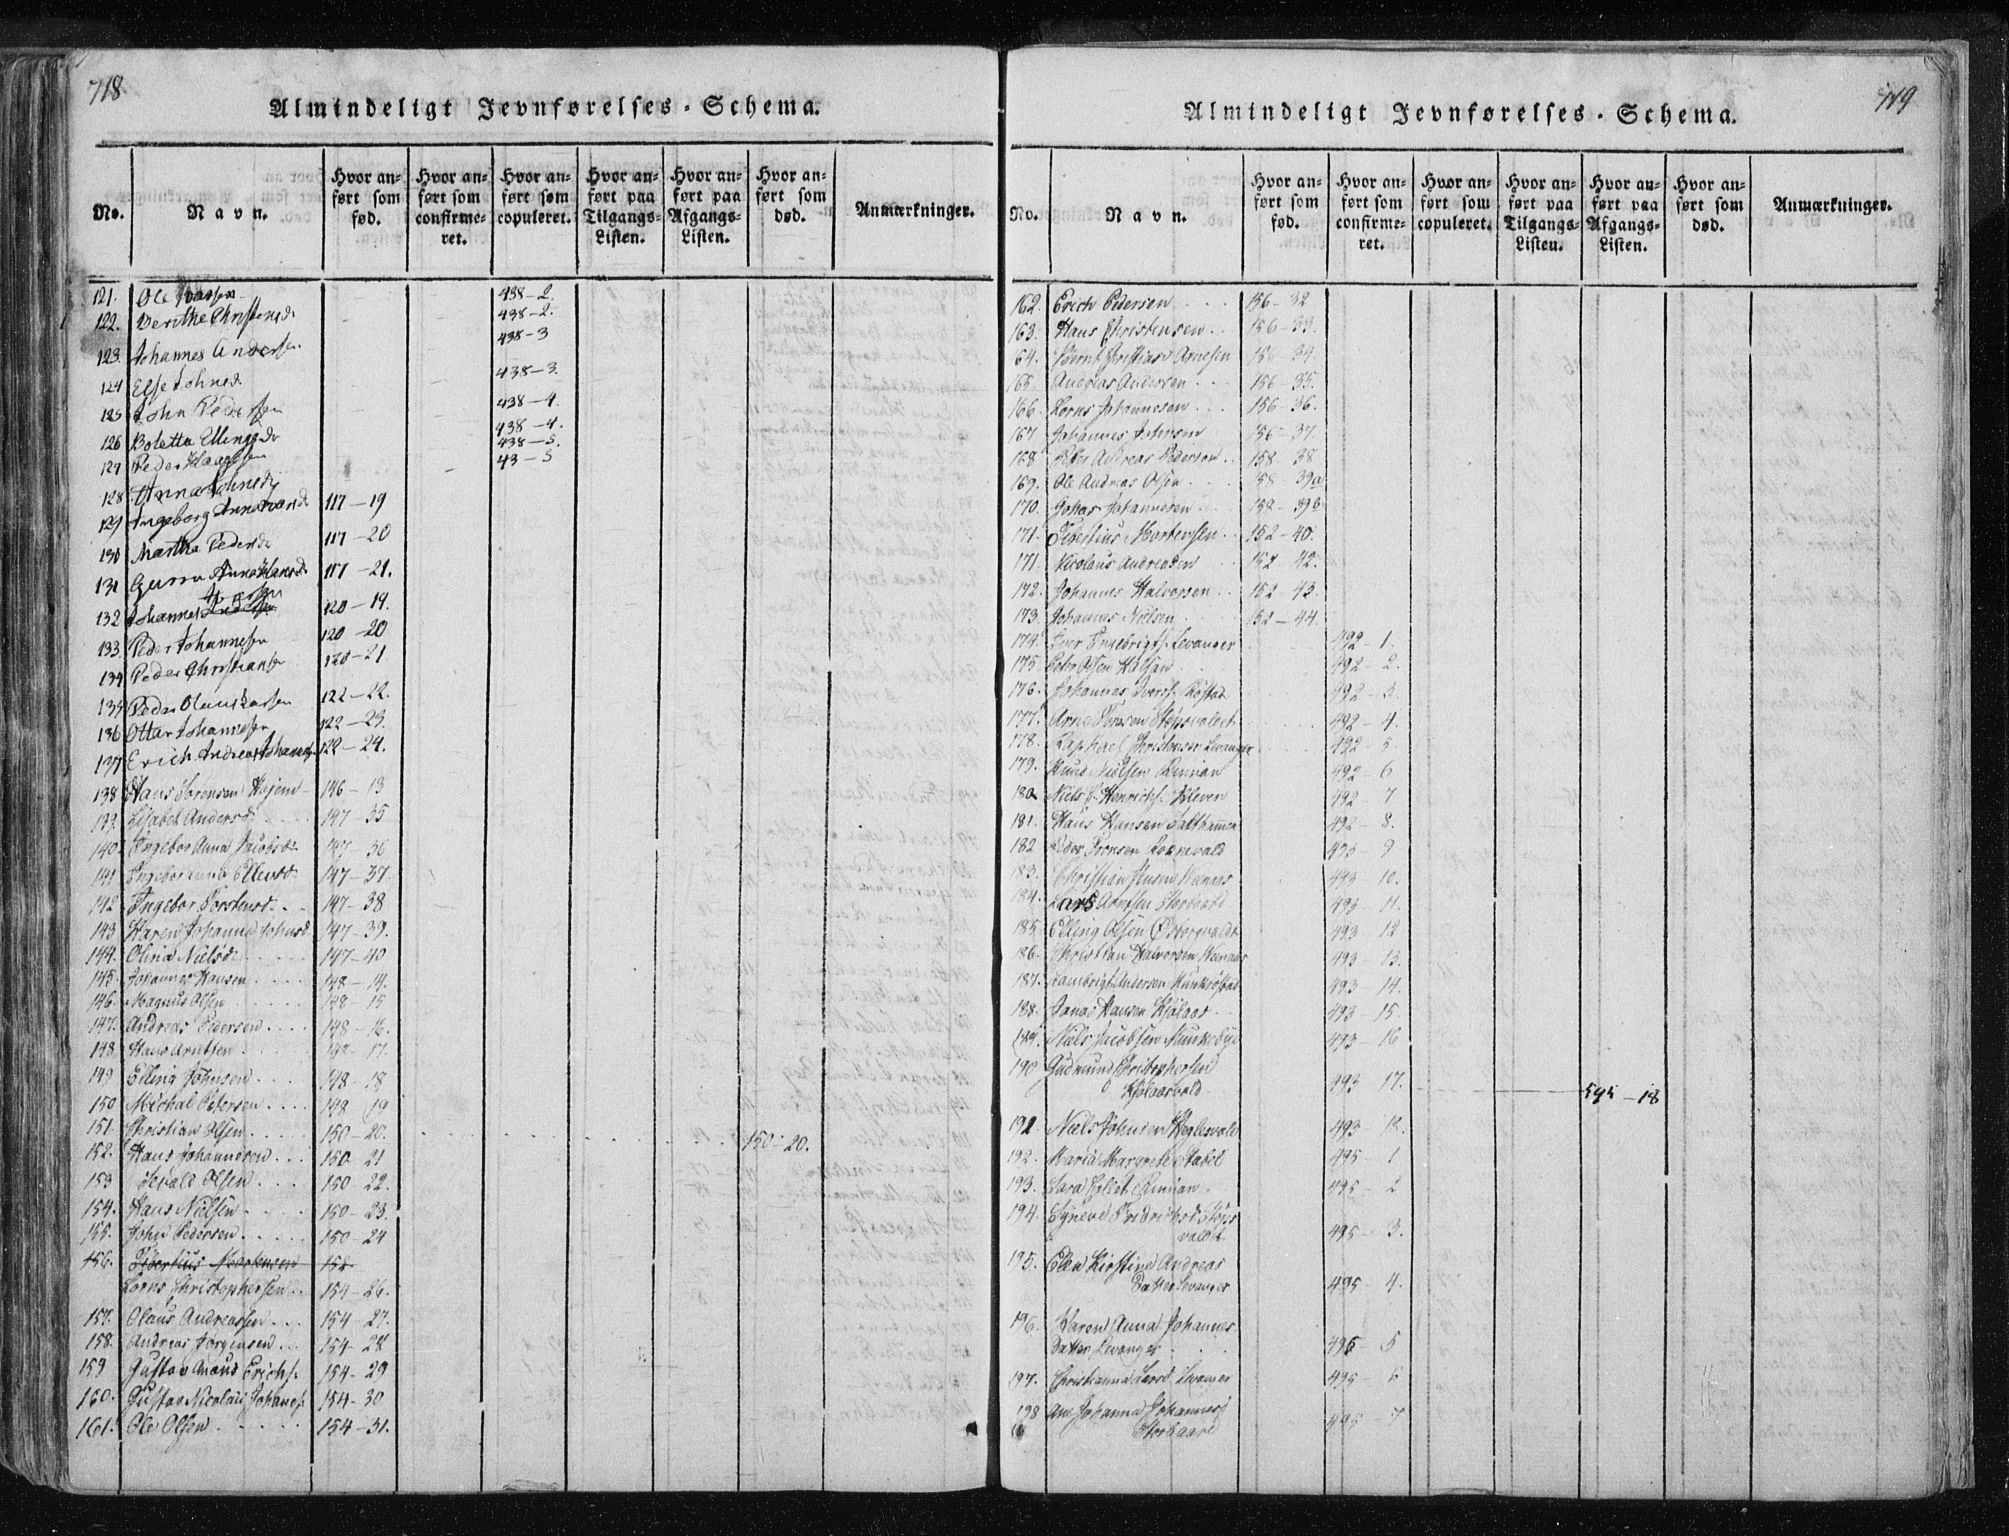 718
Almindeligt Jevnførelses-Schema.
No. Navn. Hvor anført som fød. Hvor anført som confirmeret. Hvor anført som copuleret. Hvor anført paa Tilgangs-Listen. Hvor anført paa Afgangs-Listen. Hvor anført som død. Anmærkninger.
121. Ole 438-2.
122. Berithe Christensd. 438-2.
123. Johannes Andersen 438-3
124 Else Johnsd. 438-3.
125 John Pedersen 438-4.
126 Boletta Ellingsd. 438-4.
127 Peder 438-5.
128 Anna Johnsd. 43-5
129 Ingeborg Anna 117-19
130 Martha Pedersd. 117-20
131 Gurru Anna Hansd. 117-21.
132 Johannes 120-19.
133 Peder Johannesen 120-20
134 Peder Christians. 120-21
135 Peder Olaus Larsen 122-22.
136 Ottar Johannesen 122-23.
137 Erich Andreas Johannes. 122-24.
138 Hans Sörensen Hojem 146-13
139. Lisabet Andersd. 147-35
140. Ingebor Anna Jacobsd. 147-36
141 Ingebor Anna Ellensd. 147-37
142 Ingebor Torstensd. 147-38
143 Karen Johanna Johnsd. 147-39.
144. Olina Nielsd. 147-40
145. Johannes Hansen 148-14.
146. Magnus Olsen 148-15
147. Andreas Pedersen 148-16.
148 Hans Arntsen 148-17.
149 Elling Johnsen 148-18
150 Michal Petersen 148-19
151. Christian Olsen 150-20. 150-20.
152. Hans Johannesen 150-21
153 Sevald Olsen 150-22.
154. Hans Nielsen 150-23.
155. John Pedersen 150-24
156. Tibertius Mortensen 152
Lorns Christophersen 154-26.
157. Olaus Andreassen 154-27.
158. Andreas Jörgensen 154-28
159 Gustav Erichs. 154-29
160. Gustav Nicolai Johanes. 154-30
161. Ole Olsen 154-31.
719
Almindeligt Jevnførelses-Schema.
No. Navn. Hvor anført som fød. Hvor anført som confirmeret. Hvor anført som copuleret. Hvor anført paa Tilgangs-Listen. Hvor anført paa Afgangs-Listen. Hvor anført som død. Anmærkninger.
162. Erich Pedersen 156-32
163. Hans Christensen 156-33.
64. Bernt Christian Arnesen 156-34.
165. Andreas Andersen 156-35.
166. Lorns Johannesen 156-36.
167. Johannes 156-37.
168 Peter Andreas Pedersen 158-38
169. Ole Andreas Olsen 158 39a
170. Johannesen 158-39b
171. Tibertius Mortensen 152-40.
171. Nicolaus Andreasen 152 42.
172. Johannes Halvorsen 152 43.
173. Johannes Nielsen 152-44.
174. Iver Ingebrigts. Levanger 492-1.
175. Peter Olsen 492-2.
176. Johannes Ivers. 492-3.
177. Arne 492-4.
178. Raphael Christensen Levanger 492-5
179. Knud Nielsen Rinnan 492-6
180. Niels Henrichs. Kleven 492-7
181. Hans Hansen 492-8.
182 Peder 493-9
183. Christian Jensen 493 10.
184. Lars Arntsen 493 11.
185. Elling Olsen 493 12
186. Christian Halvorsen 493-13.
187. Lambrigt Andersen Munkröstad 493 14.
188. Jonas Hansen 493-15.
189. Niels Jacobsen Munkebÿe 493-16
190 Gudmund Christophersen 493 17. 595-18
191 Niels Johnsen 493-18.
192. Maria Margrete Stabel 495-1
193. Sara 495-2
194. Syneve Fredrichsd. 495-3.
195. Elen Kirstine Andreas
Datter Levanger 495 4.
196. Karen Anna Johannes
Datter Levanger 495-5
197. Christianna Larsd. Levanger 495-6
198 Ane Johanna Johannes 495-7